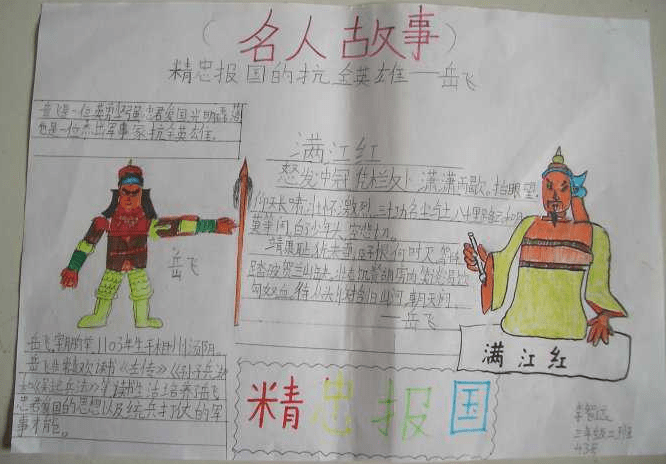 （名人故事）
精忠报国的抗金英雄——岳飞
岳飞是一位英勇坚强忠君爱国光明
他是一位杰出军事家抗金英雄。
满江红
怒发冲冠，凭栏处，潇潇雨歇。抬眼望
仰天长啸，壮怀激烈。三十功名尘与土，八千里路云和月
莫等闲，白了少年头，空悲切。
靖康耻，犹未雪。臣子恨，何时灭。驾长车
踏破贺兰山缺。壮志饥餐胡虏肉，笑谈渴饮
匈奴血。待从头，收拾旧山河，朝天阙
——岳飞
岳飞
满江红
岳飞，1103年生于相州汤阴。
岳飞非常喜欢读《左传》《孙子兵法
忠君爱国的思想以及统兵打仗的军
事才能。
精忠报国
李智远
三年级二班
43号